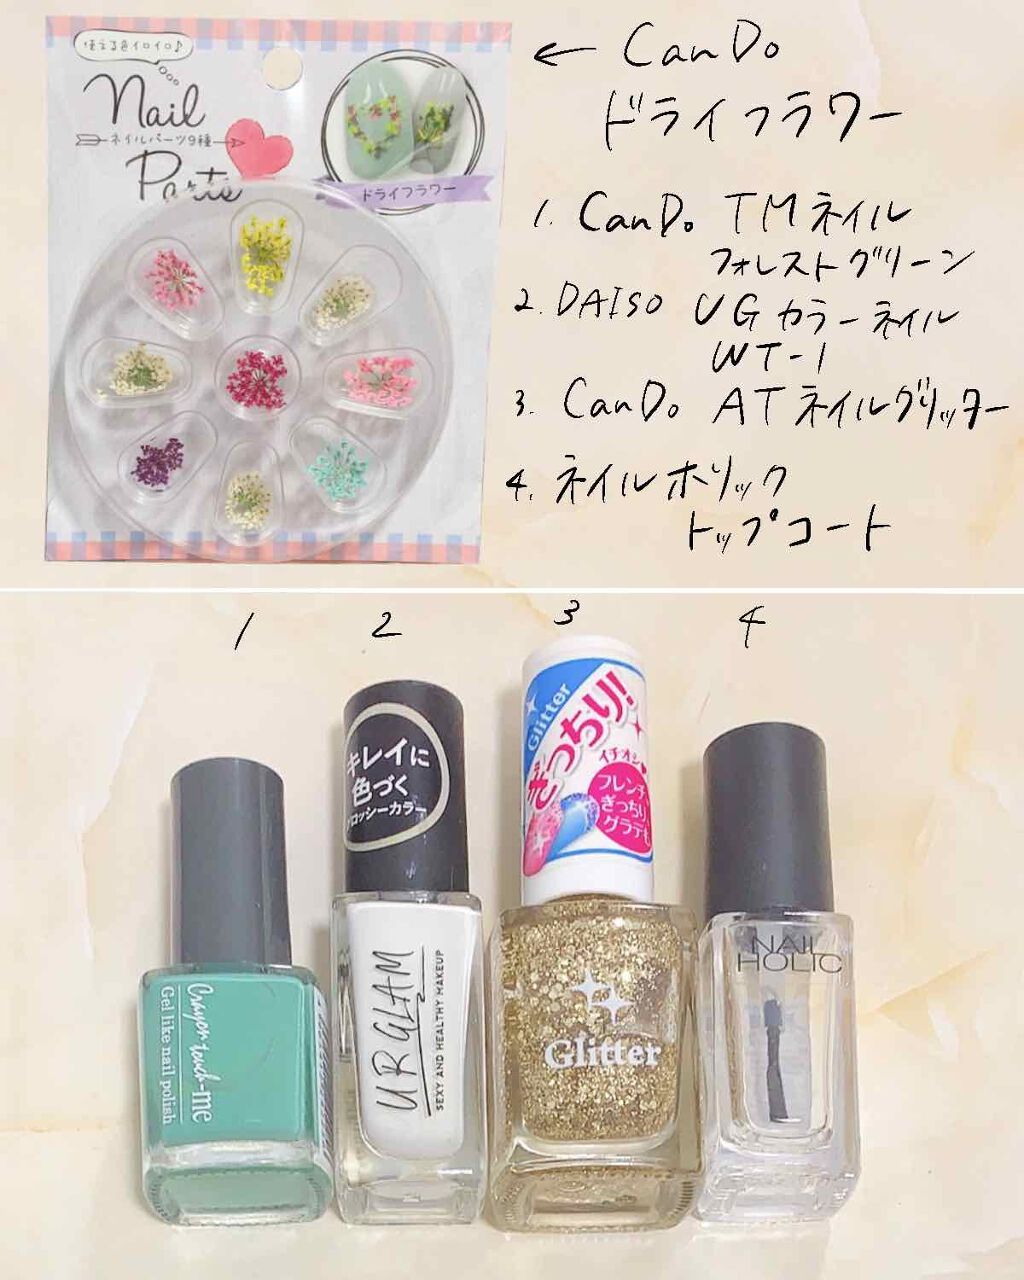 使える色イロイロ♪
Nail
ネイルパーツ9種
Parts
ドライフラワー
← CanDo
ドライフラワー
1. CanDo TMネイル
フォレストグリーン
2. DAISO UGカラーネイル
WT-1
3. CanDo ATネイルグリッター
4. ネイルホリック
トップコート
1 2 3 4
キレイに
色づく
ロッシーカラー
Glitter
ぎっちり!
イチオシ
フレンチ
ぎっちり
グラデも
Crayon touch-me
Gel like nail polish
UR GLAM
SEXY AND HEALTHY MAKEUP
Glitter
NAIL
HOLIC